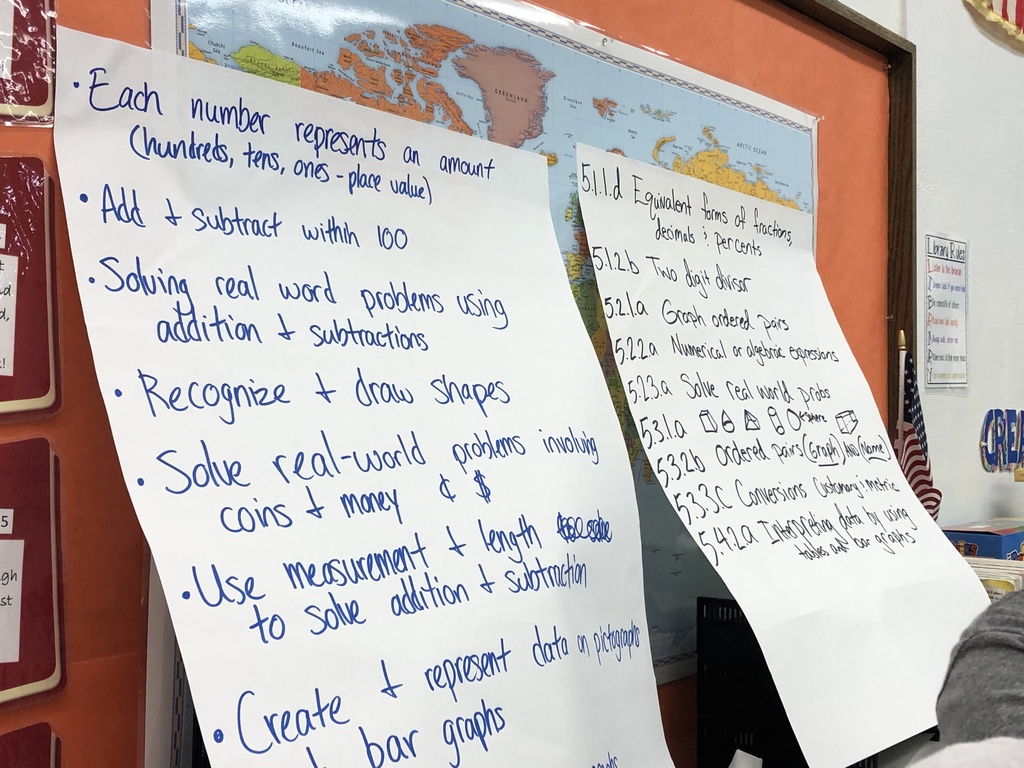 • Each number represents an amount
(hundreds, tens, ones - place value)
• Add & subtract within 100
• Solving real word problems using
addition & subtractions
• Recognize & draw shapes
• Solve real-world problems involving
coins & money ¢ $
• Use measurement & length
to solve addition & subtraction
• Create & represent data on pictographs
& bar graphs
5.1.1.d Equivalent forms of fractions,
decimals & percents
5.1.2.b Two digit divisor
5.2.1.a Graph ordered pairs
5.2.2a Numerical or algebraic expressions
5.2.3.a Solve real world probs
5.3.1.a sphere
5.3.2.b Ordered pairs (Graph) AND (Name)
5.3.3.C Conversions Customary & metric
5.4.2.a Interpreting data by using
tables and bar graphs
Beaufort Sea
GREENLAND
ARCTIC OCEAN
Library Rules
CREA
5
gh
st